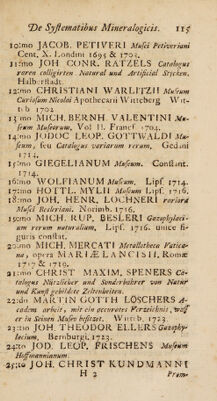 De Systematibus Mineralogicis. 115
10:mo JACOB. PETIVERI Musei Petiveriani
Cent. X. Londini 1695 & 1703.
11:mo JOH CONR. RATZELS Catalogus
raren colligirten Natural und Artificial Stücken.
Halberstadt.
12:mo CHRISTIANI WARLITZII Museum
Curiosum Nicolai Apothecarii Witteberg Wit-
teb 1702
13 mo MICH. BERNH. VALENTINI Mu-
seum Museorum, Vol II. Francf 1704.
14:mo JODOC LEOP. GOTTWALDI Mu-
seum, seu Catalogus variarum rerum, Gedani
1714.
15:mo GIEGELIANUM Museum. Constant.
1714.
16:mo WOLFIANUM Museum. Lips. 1714.
17:mo HOTTL. MYLII Museum Lips. 1716.
18:mo JOH. HENR. LOCHNERI rariora
Musei Besleriani. Norimb. 1716.
19:mo MICH. RUP. BESLERI Gazophylaci-
um rerum naturalium, Lips. 1716. unice fi-
guris constat.
20:mo MICH. MERCATI Metallotheca Vatica-
na, opera MARIÆ LANCISII, Romæ
1717 & 1719.
21:mo CHRIST MAXIM. SPENERS Ca-
talogus Nützlicher und Sonderbahrer von Natur
und Kunst gebildte Seltenheiten.
22:do MARTIN GOTTH LÖSCHERS A-
cadem arbeit, mit ein accurates Verzeichnis, was
er in Seinen Museo besitzet. Witteb. 1723
23:mo JOH. THEODOR ELLERS Gazophy-
lecium, Bernburgi. 1723.
24:to JOD. LEOP. FRISCHENS Museum
Hoffmannianum
25:to JOH. CHRIST KUNDMANNI
H 2 Prom-